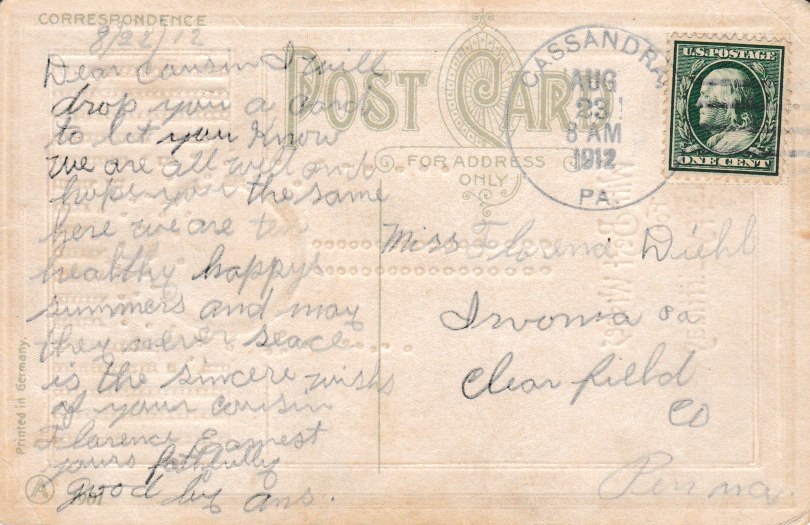 CORRESPONDENCE
8/22/12
Dear cousin I will
drop you a card
to let you know
we are all well and
hope you the same
here we are ten
healthy happys
summers and may
they never seace
is the sincere wish
of your cousin
Florence Earnest
yours fathfully
good by ans.
Printed in Germany
A
POST CARD
FOR ADDRESS
ONLY
CASSANDRA
AUG
23
8 AM
1912
PA.
U.S. POSTAGE
ONE CENT
Miss Diehl
Irvona Pa
Clearfield
Co
Penna.